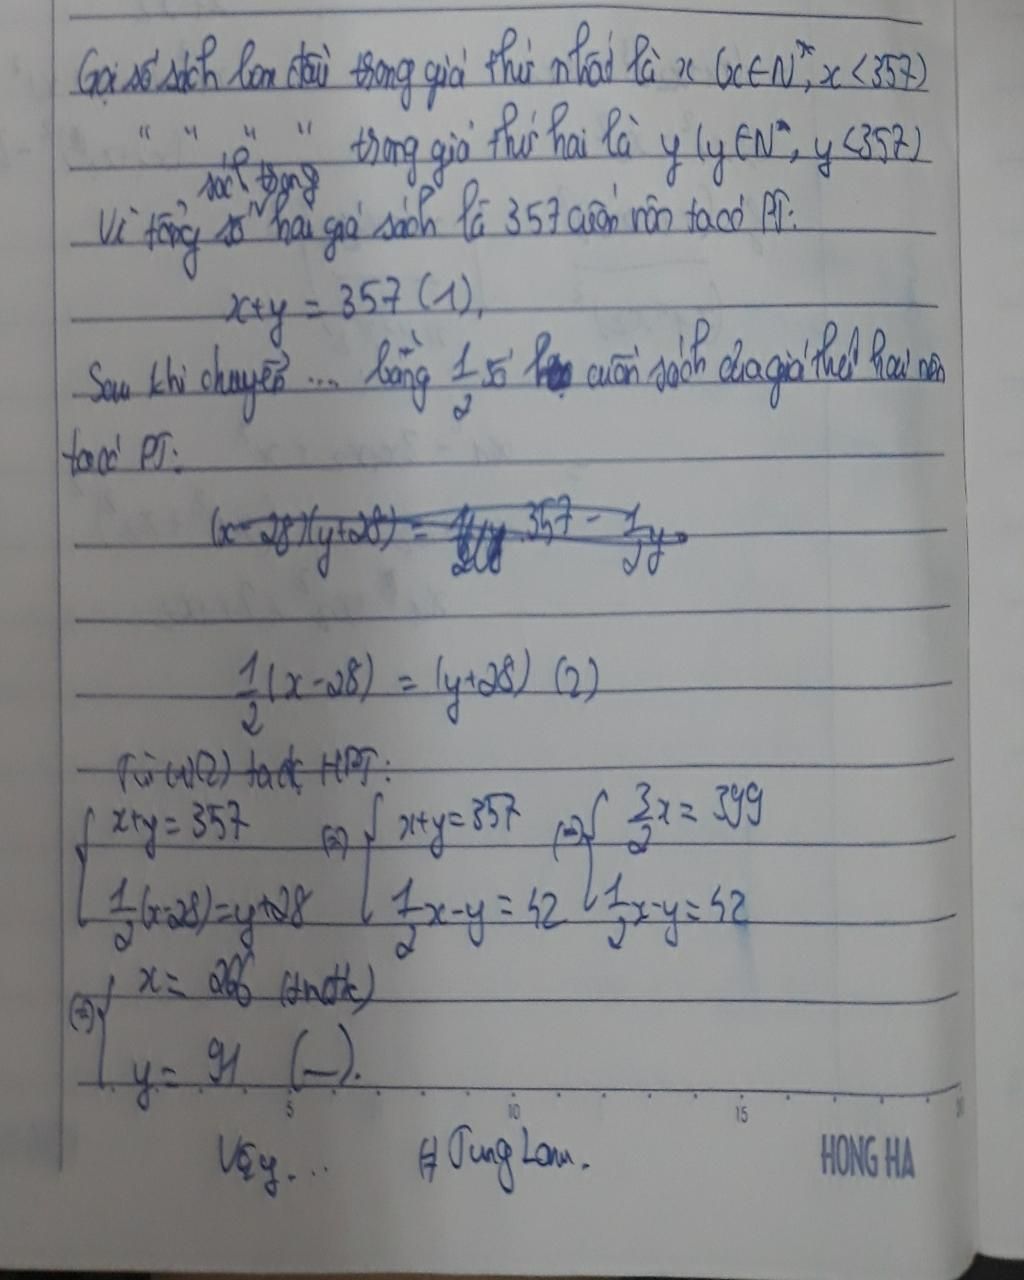 Gọi số sách ban đầu trong giá thứ nhất là x (x∈N*, x<357)
" " " " trong giá thứ hai là y (y∈N*, y<357)
sách trong
Vì tổng số hai giá sách là 357 cuốn nên ta có PT:
x+y = 357 (1),
Sau khi chuyển ... bằng 1/2 số cuốn sách của giá thứ hai nên
ta có PT:
(x-28)(y+28) = 357 - 1/2 y
1/2 (x-28) = (y+28) (2)
Từ (1)(2) ta có HPT:
{ x+y = 357 (=) { x+y = 357 (=) { 3/2 x = 399
1/2 (x-28) = y+28 1/2 x-y = 42 1/2 x-y = 42
(=) { x = 266 (tmđk)
y = 91 (—).
5 10 15
Vậy... # Tung Lam.
HONG HA